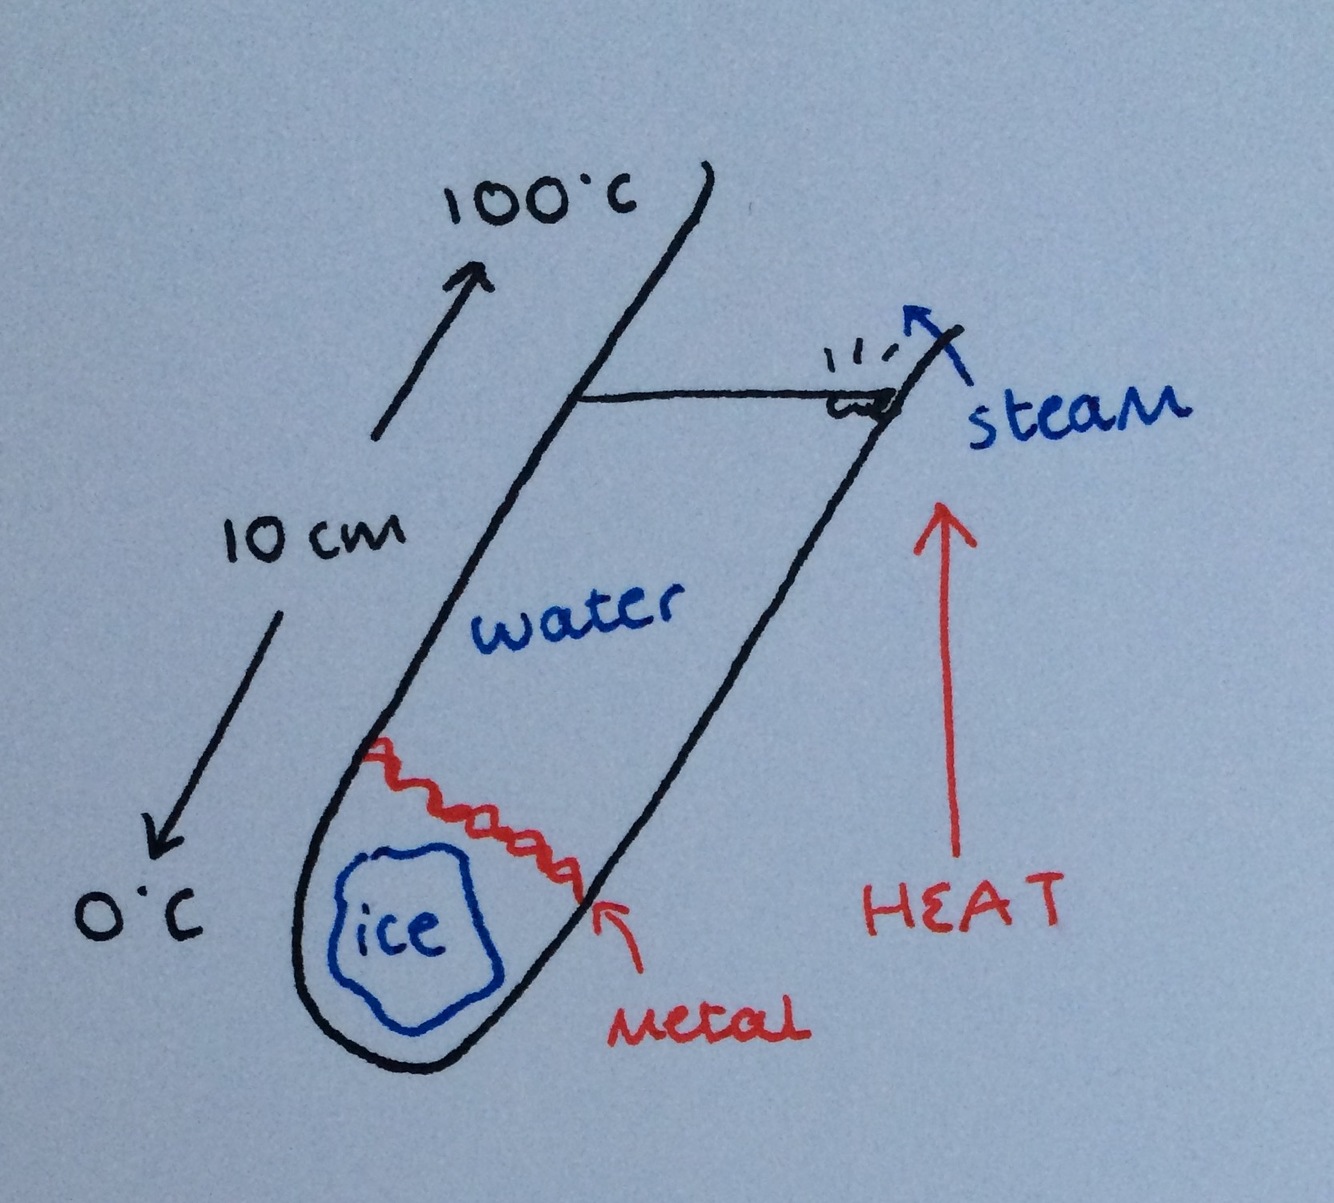 100°C
steam
10 cm
water
0°C
ice
HEAT
Metal